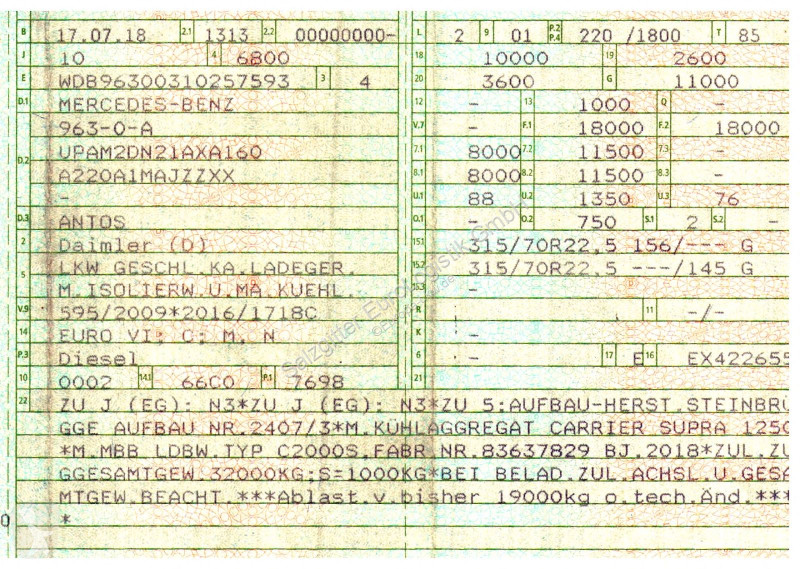 B 17.07.18 2.1 1313 2.2 00000000-
J 10 4 6800
E WDB96300310257593 3 4
D.1 MERCEDES-BENZ
963-0-A
D.2 UPAM2DN21AXA160
A220A1MAJZZXX
-
D.3 ANTOS
2 Daimler (D)
5 LKW GESCHL.KA.LADEGER.
M.ISOLIERW.U.MA.KUEHL.
V.9 595/2009*2016/1718C
14 EURO VI; C; M, N
P.3 Diesel
10 0002 14.1 66C0 P.1 7698
L 2 9 01 P.2 P.4 220 /1800 T 85
18 10000 19 2600
20 3600 G 11000
12 - 13 1000 Q -
V.7 - F.1 18000 F.2 18000
7.1 8000 7.2 11500 7.3 -
8.1 8000 8.2 11500 8.3 -
U.1 88 U.2 1350 U.3 76
O.1 - O.2 750 S.1 2 S.2 -
15.1 315/70R22,5 156/--- G
15.2 315/70R22,5 ---/145 G
15.3 -
R 11 -/-
K -
6 - 17 E 16 EX422655
21
22 ZU J (EG): N3*ZU J (EG): N3*ZU 5:AUFBAU-HERST.STEINBRÜ
GGE AUFBAU NR.2407/3*M.KÜHLAGGREGAT CARRIER SUPRA 1250
*M.MBB LDBW.TYP C2000S,FABR NR.83637829 BJ.2018*ZUL.ZU
GGESAMTGEW.32000KG;S=1000KG*BEI BELAD.ZUL.ACHSL.U.GESA
MTGEW.BEACHT.***Ablast.v.bisher 19000kg o.tech.Änd.***
0 *
Salzgitter Eurologistik GmbH